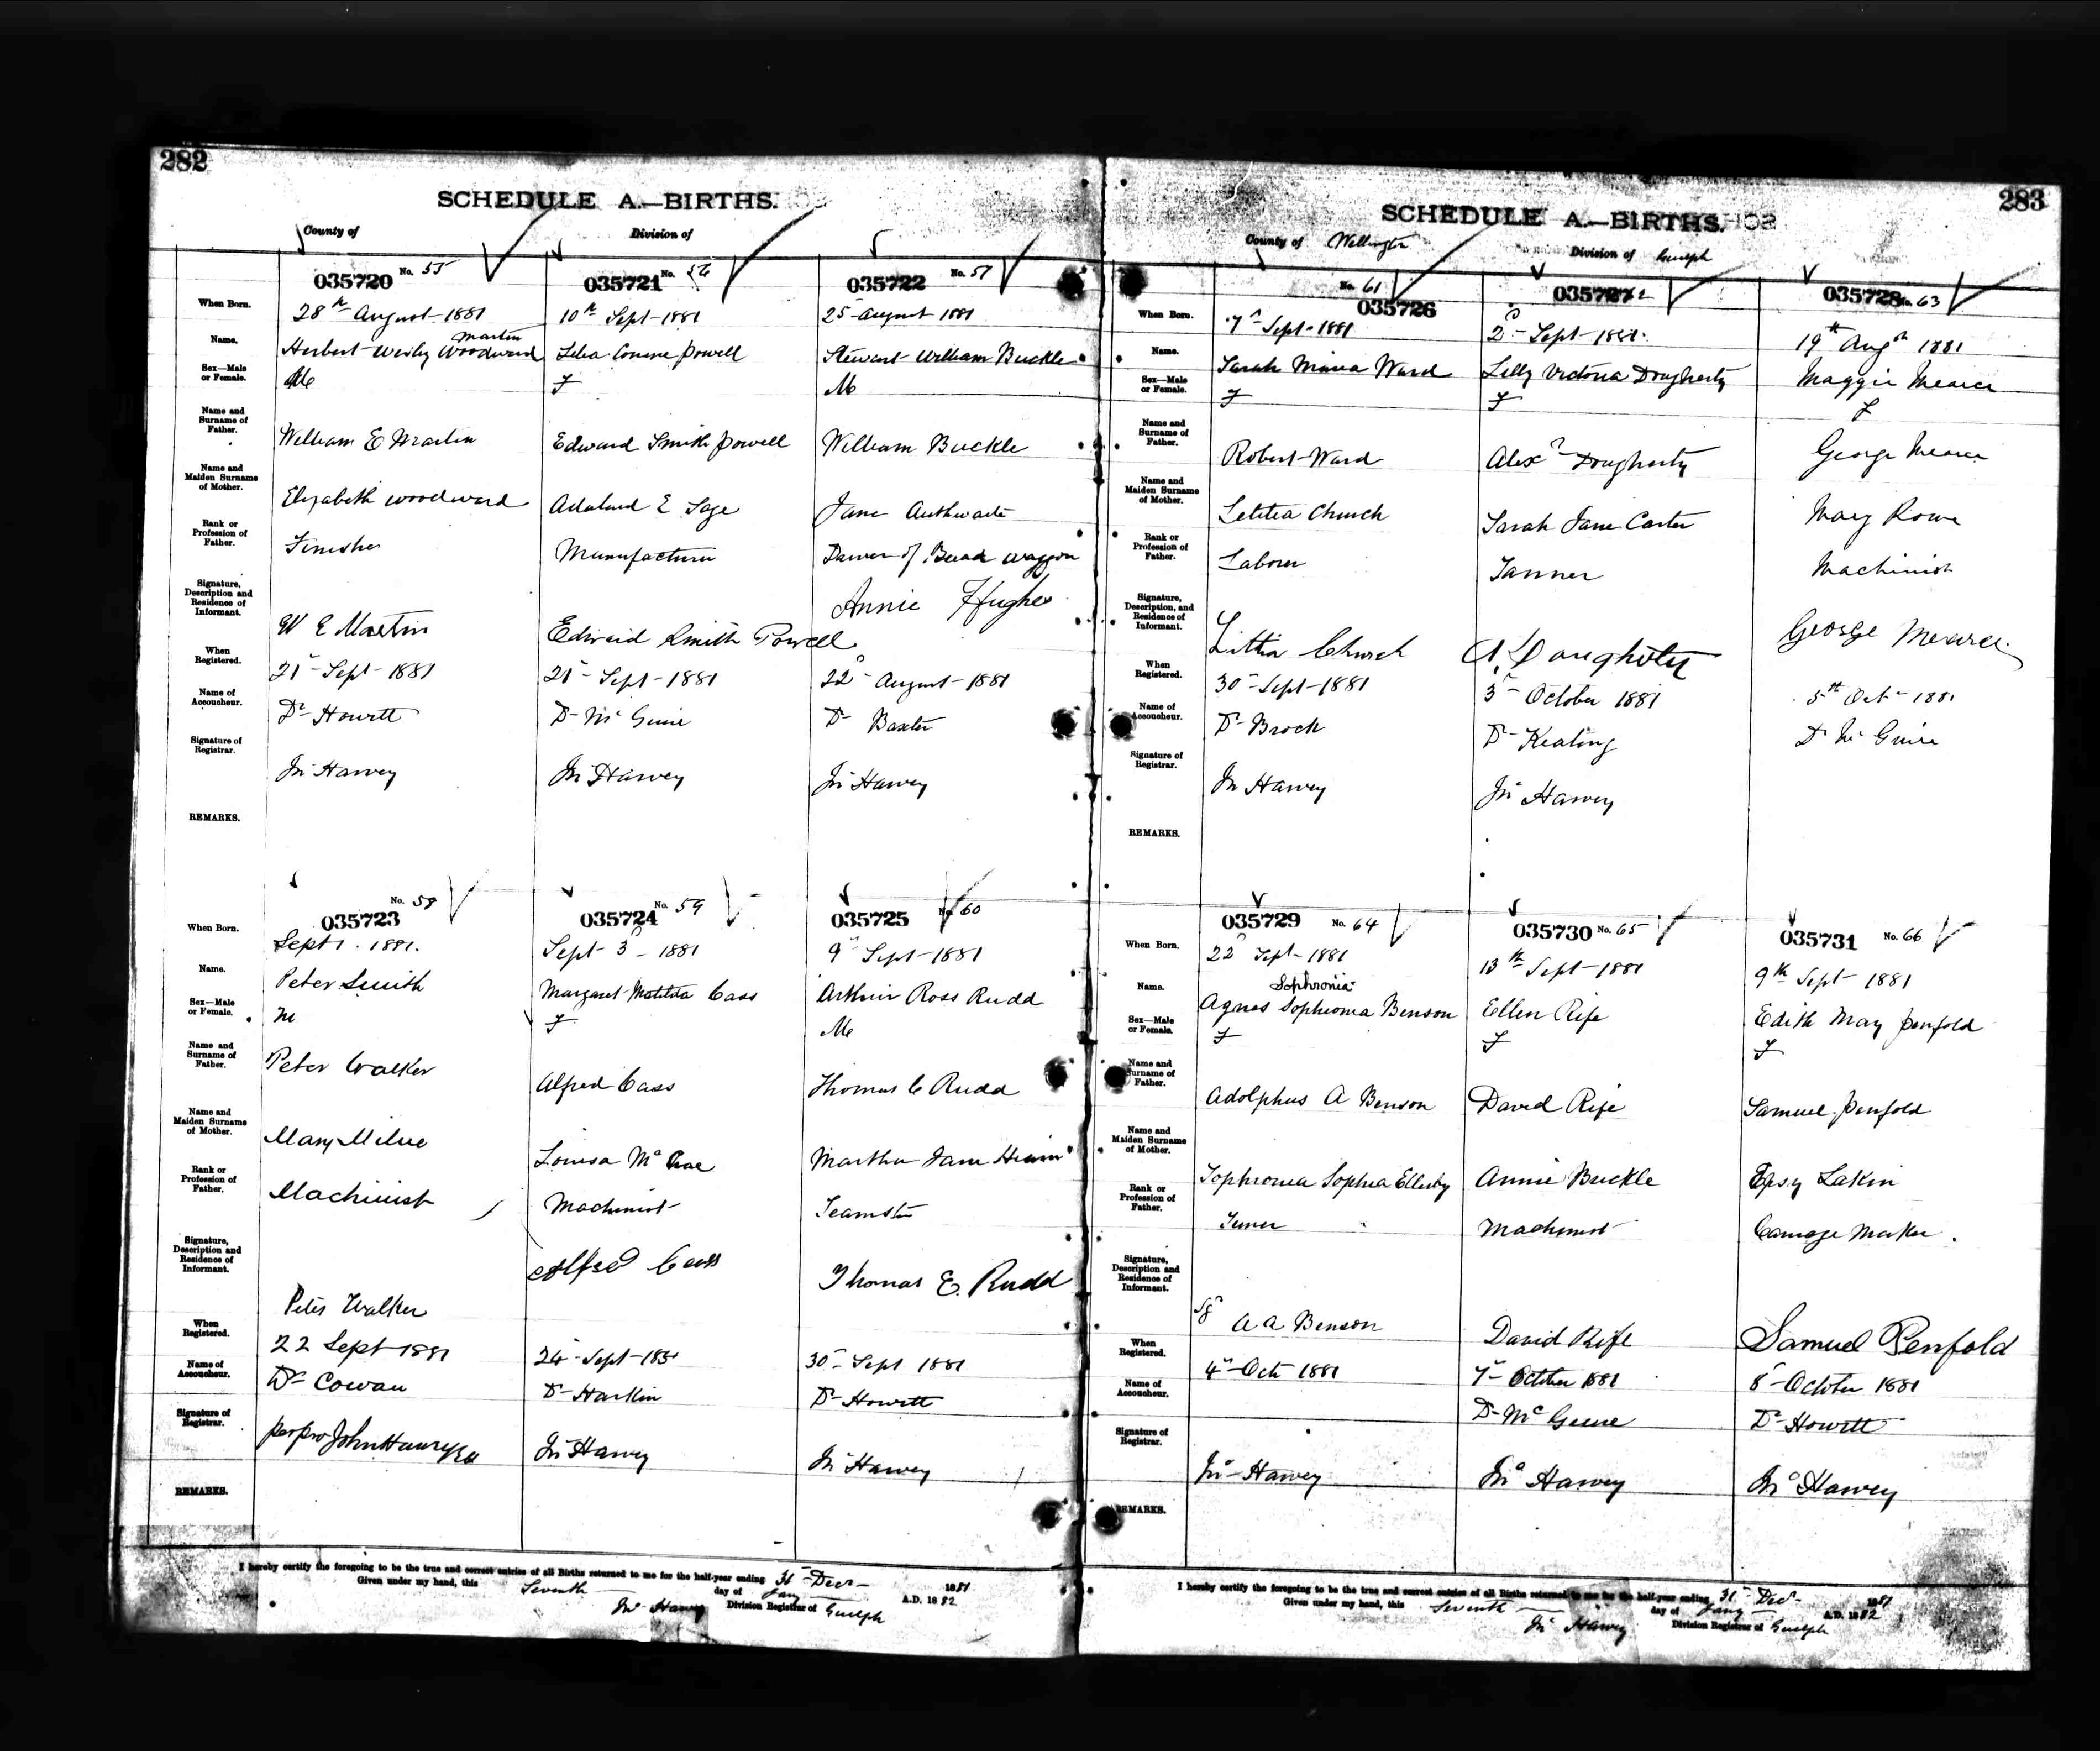 282
SCHEDULE A.—BIRTHS.
County of
Division of
035720 No. 55
035721 No. 56
035722 No. 57
When Born.
28th August 1881
10th Sept 1881
25 August 1881
Name.
Martin
Herbert Wesley Woodward
Powell
Stewart William Buckle
Sex—Male or Female.
M
F
M
Name and Surname of Father.
William E Martin
Edward Smith Powell
William Buckle
Name and Maiden Surname of Mother.
Elizabeth Woodward
E Sage
Jane Authwaite
Rank or Profession of Father.
Finisher
Manufacturer
of Bread Waggon
Signature, Description and Residence of Informant.
W E Martin
Edward Smith Powell
Annie Hughes
When Registered.
21 Sept 1881
21 Sept 1881
22 August 1881
Name of Accoucheur.
Dr Howitt
Dr McGuire
Dr Baxter
Signature of Registrar.
Jno Harvey
Jno Harvey
Jno Harvey
REMARKS.
035723 No. 58
035724 No. 59
035725 No. 60
When Born.
Sept 1. 1881.
Sept 3d 1881
9 Sept 1881
Name.
Peter Smith
Margaret Matilda Cass
Arthur Ross Rudd
Sex—Male or Female.
M
F
M
Name and Surname of Father.
Peter Walker
Alfred Cass
Thomas C Rudd
Name and Maiden Surname of Mother.
Mary Milne
Louisa McRae
Martha Jane
Rank or Profession of Father.
Machinist
Machinist
Teamster
Signature, Description and Residence of Informant.
Peter Walker
Alfred Cass
Thomas E. Rudd
When Registered.
22 Sept 1881
24 Sept 188
30 Sept 1881
Name of Accoucheur.
Dr Cowan
Dr Harkin
Dr Howitt
Signature of Registrar.
per pro John Harvey
Jno Harvey
Jno Harvey
REMARKS.
I hereby certify the foregoing to be the true and correct entries of all Births returned to me for the half-year ending 31 Decr 1881
Given under my hand, this Seventh day of Jany A.D. 1882
Jno Harvey Division Registrar of Guelph
283
SCHEDULE A.—BIRTHS.
County of Wellington
Division of Guelph
No. 61
035726
035727 62
035728 No. 63
When Born.
7 Sept 1881
2d Sept 1881.
19th Augst 1881
Name.
Sarah Ward
Lilly Victoria Dougherty
Maggie Mearce
Sex—Male or Female.
F
F
F
Name and Surname of Father.
Robert Ward
Alexr Dougherty
George Mearce
Name and Maiden Surname of Mother.
Letitia Church
Sarah Jane Carter
Mary Rowe
Rank or Profession of Father.
Laborer
Tanner
Machinist
Signature, Description, and Residence of Informant.
Littia Church
A. Doughoty
George Mearce.
When Registered.
30 Sept 1881
3 October 1881
5th Oct 1881
Name of Accoucheur.
Dr Brock
Dr Keating
Dr McGuire
Signature of Registrar.
Jno Harvey
Jno Harvey
REMARKS.
035729 No. 64
035730 No. 65
035731 No. 66
When Born.
22d Sept 1881
13th Sept 1881
9th Sept 1881
Name.
Sophronia
Agnes Sophronia Benson
Ellen Rife
Edith May Penfold
Sex—Male or Female.
F
F
F
Name and Surname of Father.
Adolphus A Benson
David Rife
Samuel Penfold
Name and Maiden Surname of Mother.
Sophronia Sophia Ellerby
Annie Buckle
Epsy Lakin
Rank or Profession of Father.
Tuner
Machinist
Carriage Maker.
Signature, Description and Residence of Informant.
Sgd A A Benson
David Rife
Samuel Penfold
When Registered.
4 Oct 1881
7 October 1881
8 October 1881
Name of Accoucheur.
Dr McGuire
Dr Howitt
Signature of Registrar.
Jno Harvey
Jno Harvey
Jno Harvey
REMARKS.
I hereby certify the foregoing to be the true and correct entries of all Births returned to me for the half-year ending 31 Decr 1881
Given under my hand, this Seventh day of Jany A.D. 1882
Jno Harvey Division Registrar of Guelph